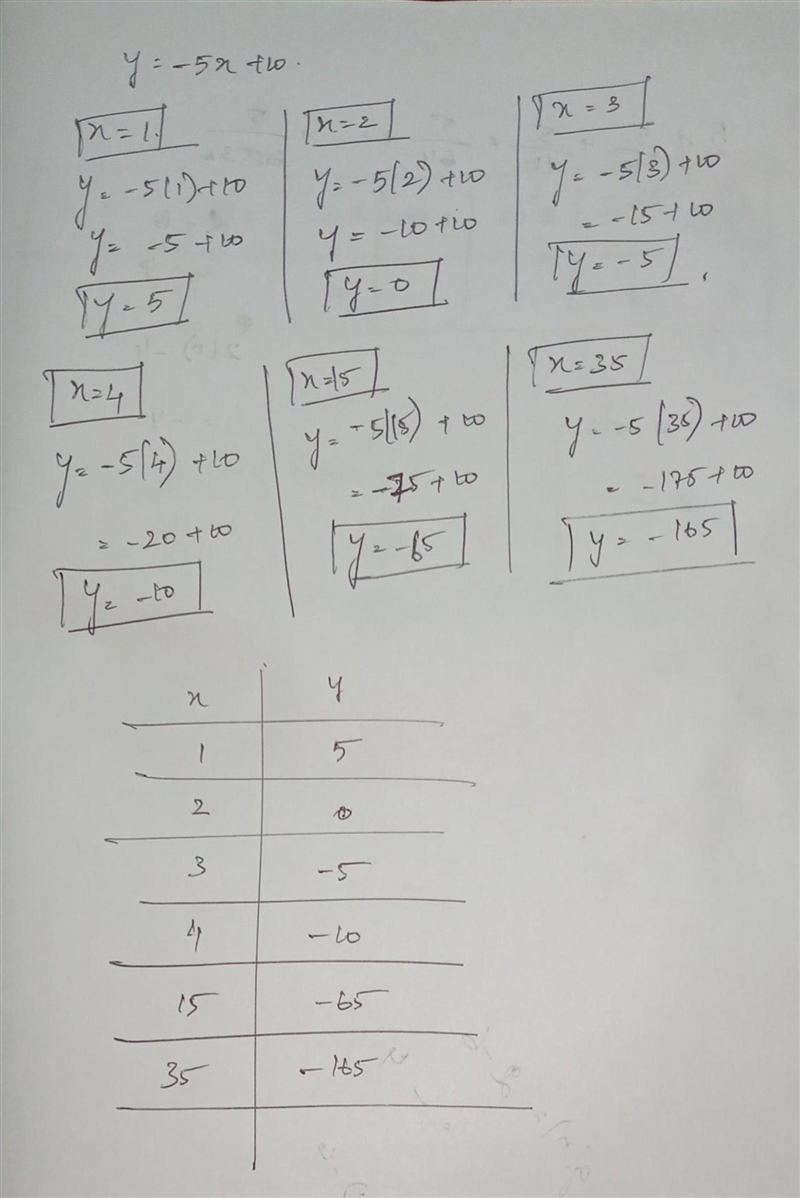 y = -5x + 10.
x = 1.
y = -5(1) + 10
y = -5 + 10
y = 5
x = 2
y = -5(2) + 10
y = -10 + 10
y = 0
x = 3
y = -5(3) + 10
= -15 + 10
y = -5
x = 4
y = -5(4) + 10
= -20 + 10
y = -10
x = 15
y = -5(15) + 10
= -75 + 10
y = -65
x = 35
y = -5(35) + 10
= -175 + 10
y = -165
x y
1 5
2 0
3 -5
4 -10
15 -65
35 -165